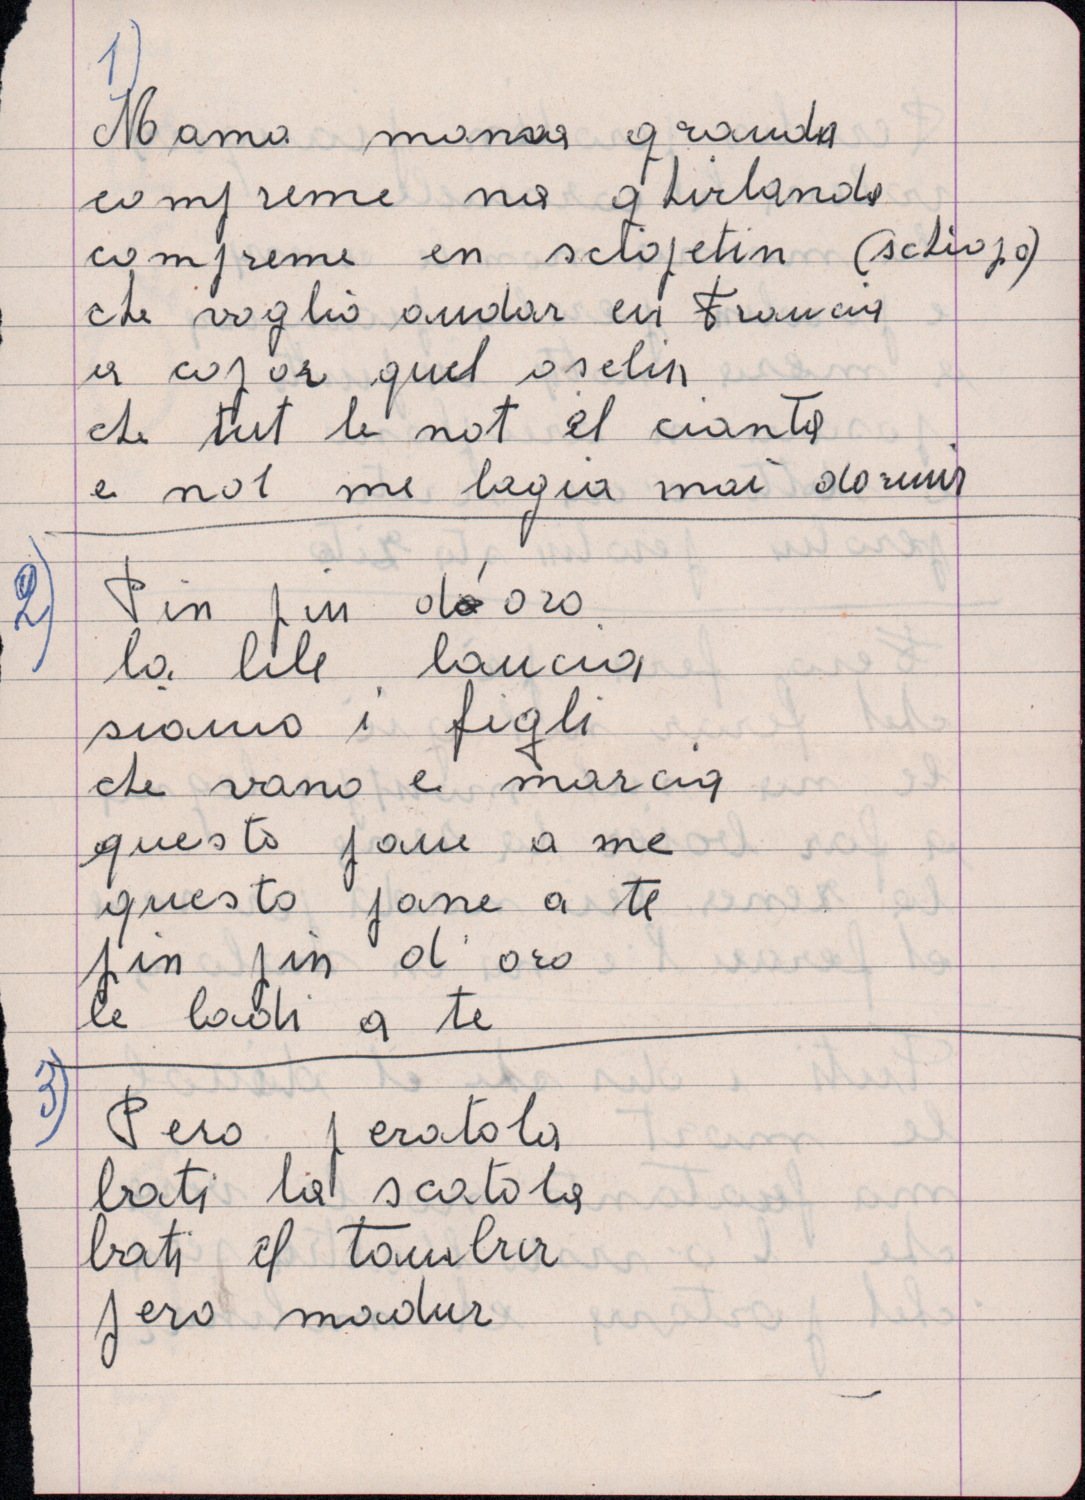 1)
Mama mama granda
compreme na ghirlanda
compreme en sctopetin (schiopo)
che voglio andar en Francia
a copar quel oselin
che tut le not el cianta
e nol me lagia mai dormir
2)
Pin pin d'oro
la lile lancia
siamo i figli
che vano e marcia
questo pane a me
questo pane a te
pin pin d'oro
le ladi a te
3)
Pero peratola
bati la scatola
bati el tambur
pero madur